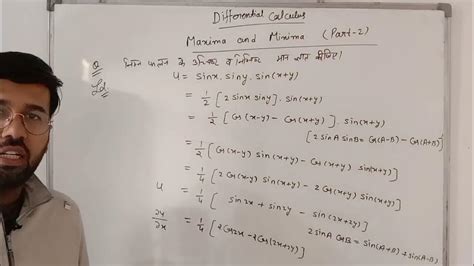 Differential Calculus
Maxima and Minima (Part-2)
Q निम्न फलन के उच्चिष्ठ व निम्निष्ठ मान ज्ञात कीजिए।
u = sinx. siny. sin(x+y)
Sol
= 1/2 [2 sinx siny]. sin(x+y)
= 1/2 [Cos(x-y) - Cos(x+y)]. sin(x+y)
[2 sinA sinB = Cos(A-B) - Cos(A+B)]
= 1/2 [Cos(x-y) sin(x+y) - Cos(x+y) sin(x+y)]
= 1/4 [2 Cos(x-y) sin(x+y) - 2 Cos(x+y) sin(x+y)]
u = 1/4 [sin2x + sin2y - sin(2x+2y)]
2 sinA CosB = sin(A+B) + sin(A-B)
∂u/∂x = 1/4 [2Cos2x - 2Cos(2x+2y)]